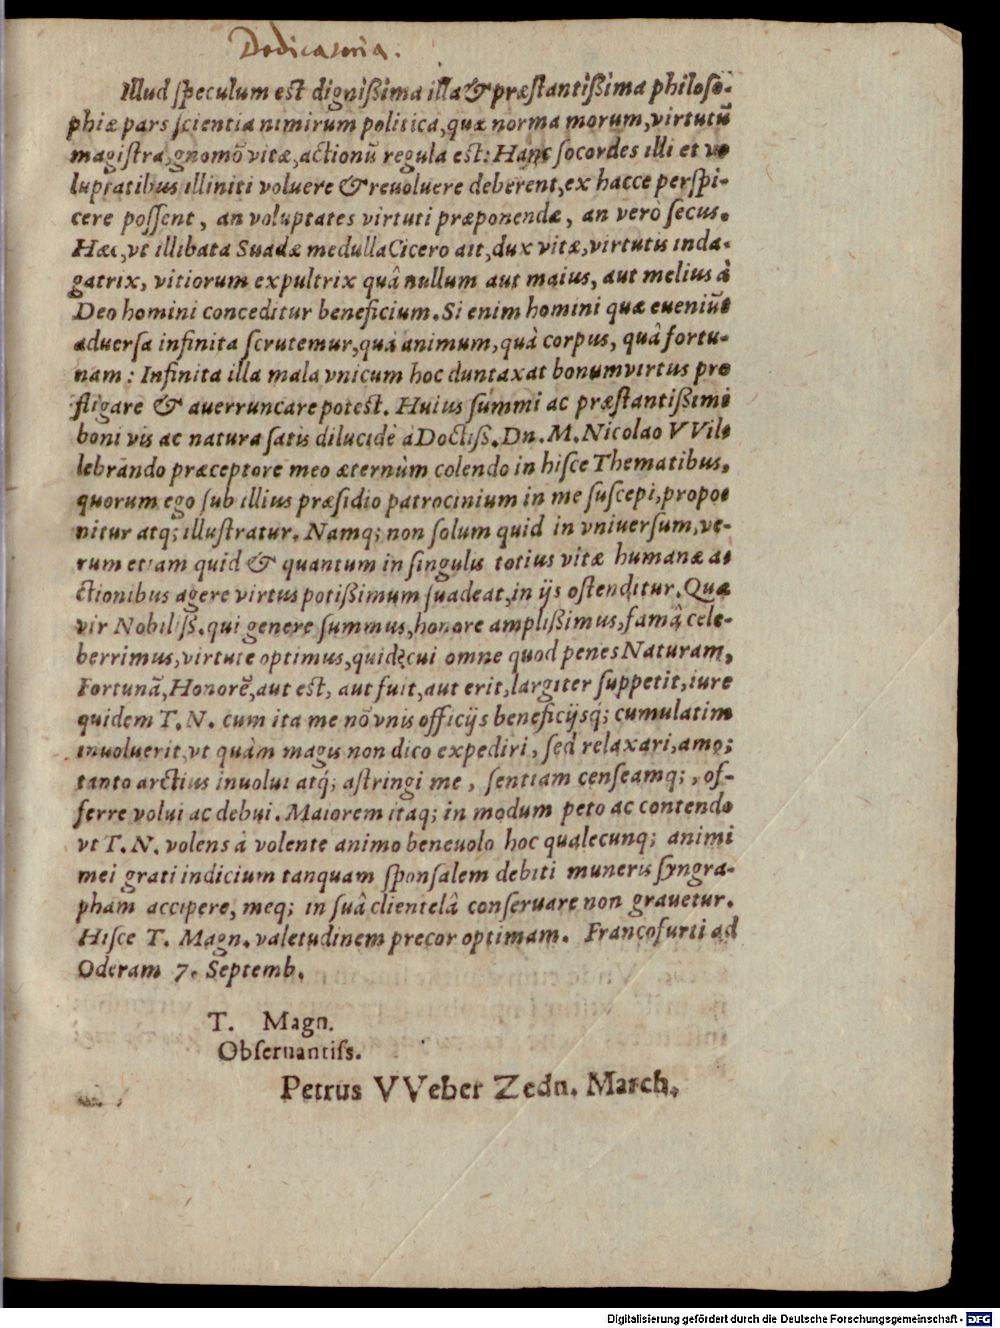 Dedicatoria.
Illud speculum est dignißima illa & præstantißima philoso-
phiæ pars scientia nimirum politica, quæ norma morum, virtutũ
magistra, gnomõ vitæ, actionũ regula est: Hanc socordes illi et vo
luptatibus illiniti voluere & reuoluere deberent, ex hacce perspi-
cere possent, an voluptates virtuti præponendæ, an verò secus.
Hæc, vt illibata Suadæ medulla Cicero ait, dux vitæ, virtutis inda-
gatrix, vitiorum expultrix quâ nullum aut maius, aut melius à
Deo homini conceditur beneficium. Si enim homini quæ eueniũt
aduersa infinita scrutemur, quà animum, quà corpus, quâ fortu-
nam: Infinita illa mala vnicum hoc duntaxat bonum virtus pro
fligare & auerruncare potest. Huius summi ac præstantißimi
boni vis ac natura satis dilucidè à Doctiß. Dn. M. Nicolao VVil-
lebrando præceptore meo æternùm colendo in hisce Thematibus,
quorum ego sub illius præsidio patrocinium in me suscepi, propo-
nitur atq; illustratur. Namq; non solum quid in vniuersum, ve-
rum etiam quid & quantum in singulis totius vitæ humanæ a-
ctionibus agere virtus potißimum suadeat, in ijs ostenditur. Quæ
vir Nobiliß. qui genere summus, honore amplißimus, famâ cele-
berrimus, virtute optimus, quidq; cui omne quod penes Naturam,
Fortunã, Honorẽ, aut est, aut fuit, aut erit, largiter suppetit, iure
quidem T. N. cum ita me nõ vnis officijs beneficijsq́; cumulatim
inuoluerit, vt quàm magis non dico expediri, sed relaxari, amo;
tanto arctius inuolui atq́; astringi me, sentiam censeamq;, of-
ferre volui ac debui. Maiorem itaq; in modum peto ac contendo
vt T. N. volens à volente animo beneuolo hoc qualecunq; animi
mei grati indicium tanquam sponsalem debiti muneris syngra-
pham accipere, meq; in suâ clientelâ conseruare non grauetur.
Hisce T. Magn. valetudinem precor optimam. Francofurti ad
Oderam 7. Septemb.
T. Magn.
Obseruantiss.
Petrus VVeber Zedn. March.
Digitalisierung gefördert durch die Deutsche Forschungsgemeinschaft - DFG